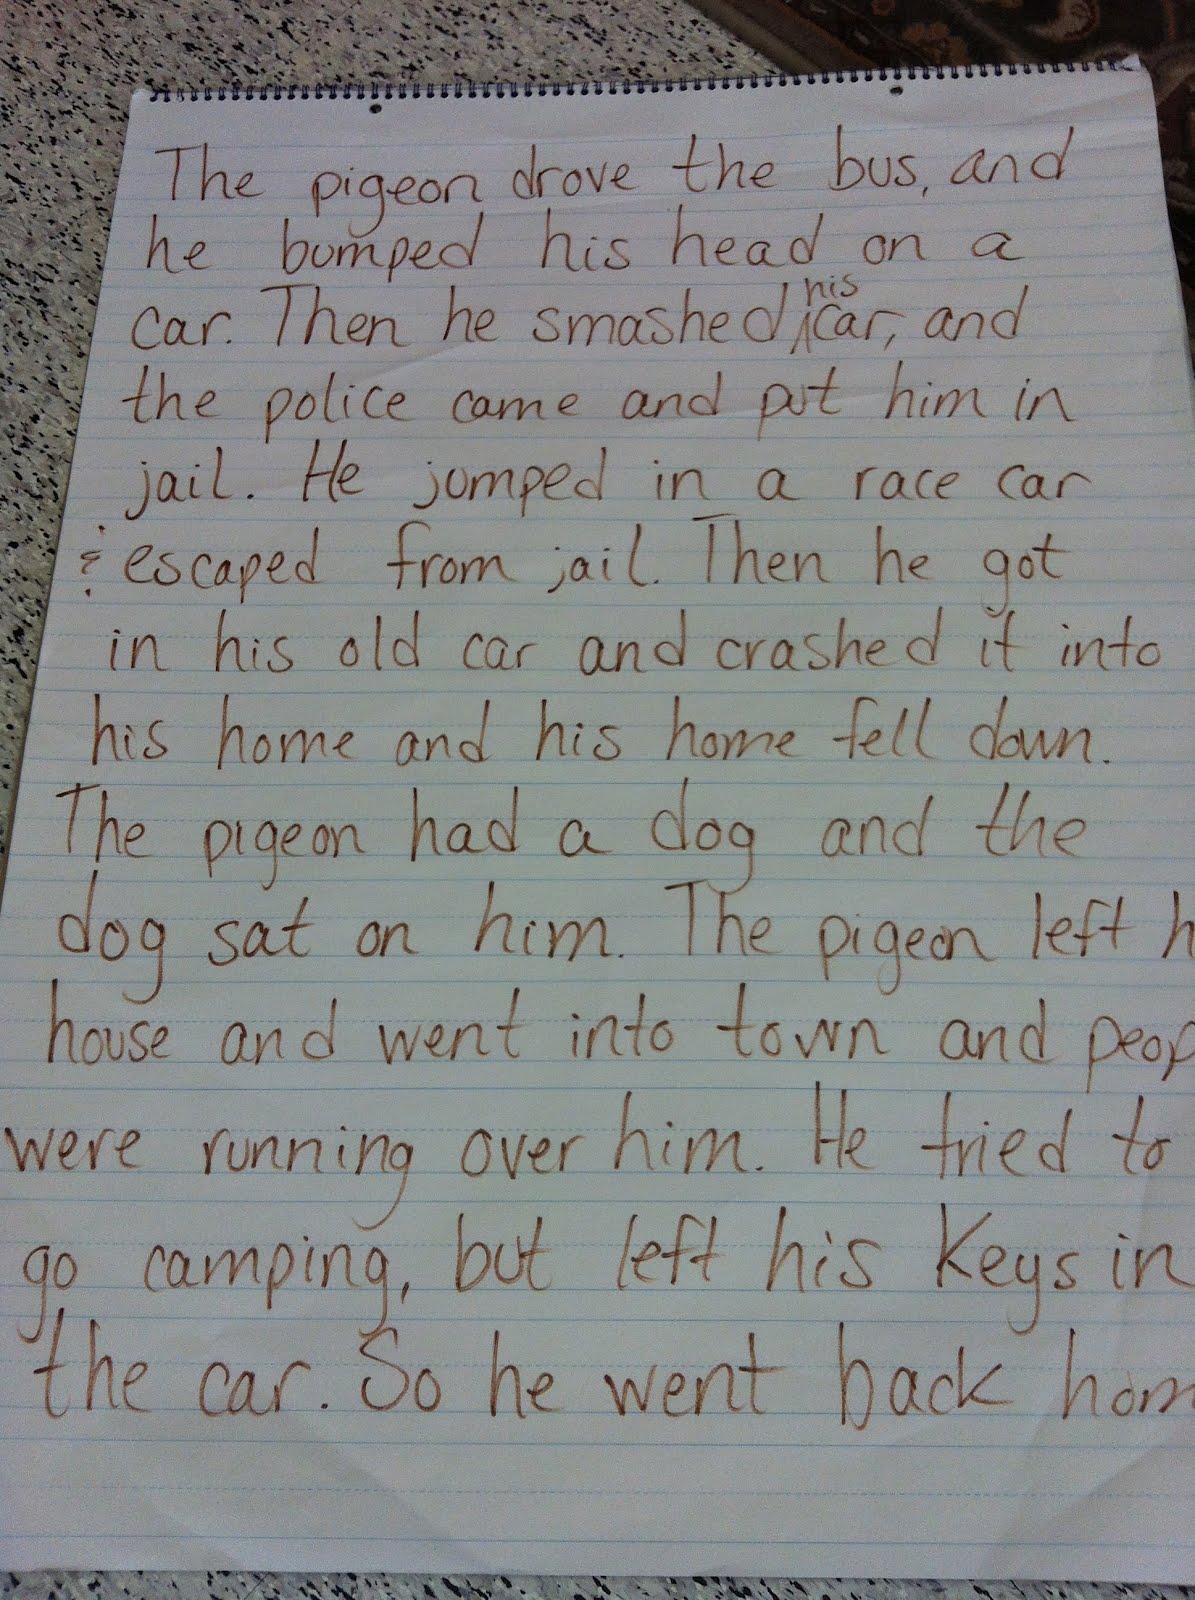 The pigeon drove the bus, and
he bumped his head on a
car. Then he smashed his car, and
the police came and put him in
jail. He jumped in a race car
& escaped from jail. Then he got
in his old car and crashed it into
his home and his home fell down.
The pigeon had a dog and the
dog sat on him. The pigeon left h
house and went into town and peop
were running over him. He tried to
go camping, but left his keys in
the car. So he went back hom